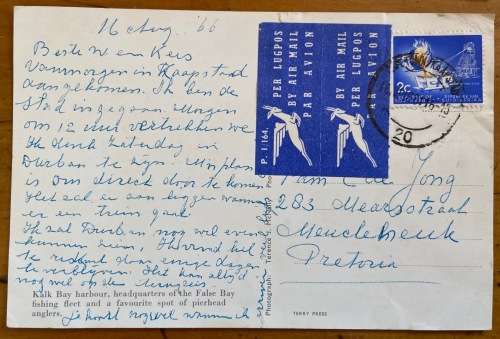 16 Aug. '66
Beste W en Kees
Vanmorgen in Kaapstad
aangekomen. Ik ben de
Stad ingegaan. Morgen
om 12 uur vertrekken we
Ik denk Zaterdag in
Durban te zijn. Mijn plan
is om direct door te komen
Het zal er aan liggen wanneer
er een trein gaat
Ik zal Durban nog wel even
kunnen zien,
te door enige dagen
te verblijven. Het kan altijd
nog wel op de terugreis
Je hoort nog wel wanneer ik
PER LUGPOS
BY AIR MAIL
PAR AVION
PER LUGPOS
BY AIR MAIL
PAR AVION
P. 1.164.
2c
20
Fam. de Jong
283 Mearsstraat
Pretoria
Kalk Bay harbour, headquarters of the False Bay
fishing fleet and a favourite spot of pierhead
anglers.
Photograph: Terence J.
TERRY PRESS